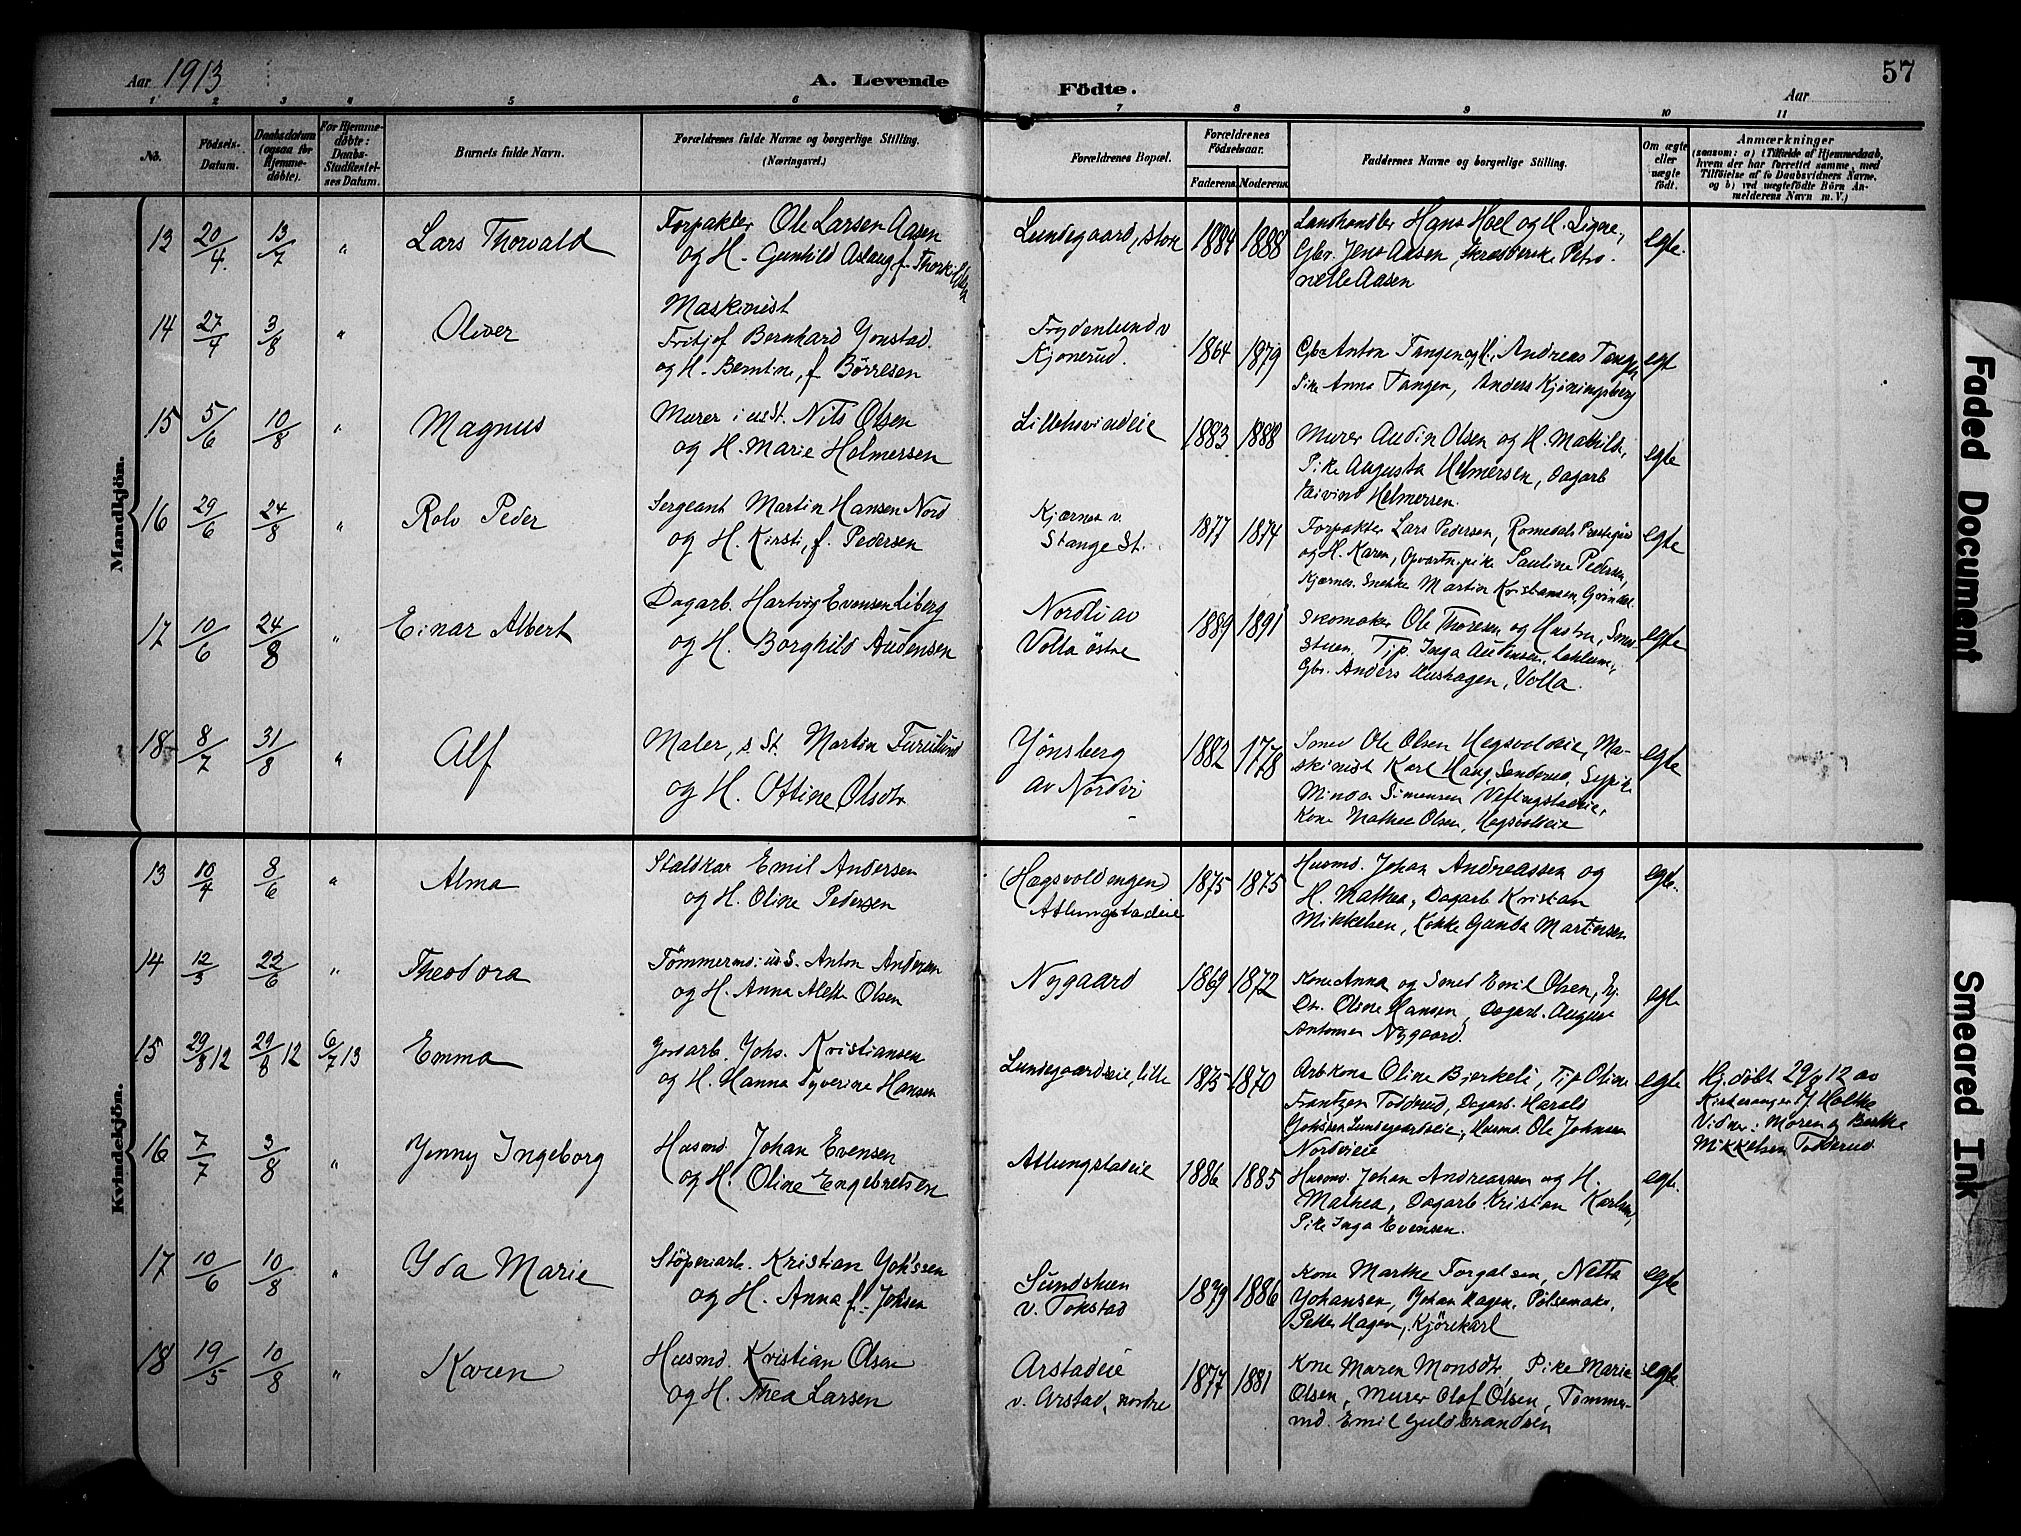 Aar 1913
A. Levende
Födte.
Aar
57
1 2 3 4 5 6 7 8 9 10 11
No.
Födsels-
Datum.
Daabsdatum
(ogsaa for
Hjemme-
döbte).
For Hjemme-
döbte:
Daabs-
Stadfæstel-
ses Datum.
Barnets fulde Navn.
Forældrenes fulde Navne og borgerlige Stilling.
(Næringsvei.)
Forældrenes Bopæl.
Forældrenes
Födselsaar.
Faderens. Moderens.
Faddernes Navne og borgerlige Stilling.
Om ægte
eller
uægte
født.
Anmærkninger
(saasom: a) i Tilfælde af Hjemmedaab,
hvem der har forrettet samme, med
Tilföielse af to Daabsvidners Navne,
og b) ved uægtefödte Börn An-
melderens Navn m. V.)
Mandkjön.
13 20/4. 13/7 " Lars Thorvald
Forpakter Ole Larsen Aasen
og H. Gunhild Aslaug f. Thorkildsen
Lundegaard, store 1884 1888
Landhandler Hans Hoel og H. Signe,
Gbr. Jens Aasen, Petro-
nelle Aasen
egte.
14 27/4 3/8 " Oliver
Maskinist
Fritjof Bernhard Ynstad
og H. Berntine, f. Børresen
Frydenlund v
Kjonerud. 1864 1879
Gbr Anton Tangen og H., Andreas Tangen
Pike Anna Tangen, Anders Kjiningsberg
egt
15 5/6 10/8 " Magnus
Murer i us St. Nils Olsen
og H. Marie Holmersen
Lillehvindeie 1883 1888
Murer Audin Olsen og H. Mathilde,
Pike Augusta Helmersen, Dagarb
Eivind Helmersen.
egte
16 29/6 24/8 " Rolv Peder
Sergeant Martin Hansen Nord
og H. Kirsti, f. Pedersen
Kjærnes v.
Stange St. 1877 1874
Forpakter Lars Pedersen, Romedals Prestegård
og H. Karen, Opvartn.pike Pauline Pedersen,
Kjærnes. Snekke Martin Kristiansen,
egte
17 10/6 24/8 " Einar Albert
Dagarb. Hartvig Evensen Liberg
og H. Borghild Audensen
Nordli av
Volla östre 1889 1891
Skomaker Ole Thoresen og Hustru,
stuen, Tjp. Inga Audensen,
Gbr. Anders Hushagen, Volla.
egte
18 8/7 31/8 " Alf
Maler, s. St. Martin Furulund
og H. Ottine Olsdtr
Yönsberg
av Nordvi 1882 1778
Smed Ole Olsen Hegsvoldeie, Ma-
skinist Karl Haug, Sanderud, Sypike
Minda Simensen Veflingstadeie,
Kone Mathea Olsen, Hegsvoldeie
egte
Kvindekjön.
13 10/4 8/6 " Alma
Staldkar Emil Andersen
og H. Oline Pedersen
(Hagsvoldengen)
Atlungstadeie 1875 1875
Husmd. Johan Andreassen og
H. Mathea, Dagarb Kristian
Mikkelsen, Kokke Gunda Martinsen
egte.
14 12/3 22/6 " Theodora
Tömmermd. i us S. Anton Andersen
og H. Anna Alette Olsen
Nygaard 1869 1872
Kone Anna og Smed Emil Olsen, Gj.
Dtr. Oline Hansen, Dagarb. August
Antonsen Nygaard.
egte
15 29/8 12 29/8 12 6/7 13 Emma
Jordarb. Johs. Kristiansen
og H. Hanna Syverine Hansen
Lundegaardseie, lille 1875 1870
Arb Kone Oline Bjerkeli, Tjp Oline
Frantzen Todderud, Dagarb. Harald
Johssen Lundegaardseie, Husmd. Ole Johnsen
Nordvieie
egte
Hj. döbt 29/8 12 av
Kirkesanger J. Holtke
Vidner: Moren og Berthe
Mikkelsen Todderud
16 7/7 3/8 " Jenny Ingeborg
Husmd. Johan Evensen
og H. Oline Engebretsen
Atlungstadeie 1886 1885
Husmd. Johan Andreassen og H.
Mathea, Dagarb Kristian Karlsen,
Pike Inga Evensen.
egte.
17 10/6 10/8 " Yda Marie
Stöperiarb. Kristian Johssen
og H. Anna f. Johsen
Sundstuen
v. Tokstad 1879 1886
Kone Marthe Torgalsen, Netta
Johansen, Johan Hagen, Pölsemaker,
Petter Hagen, Kjörekarl
egte
18 19/5 10/8 " Karen
Husmd. Kristian Olsen
og H. Thea Larsen
Arstadeie
v. Arstad, nordre 1877 1881
Kone Maren Monsdtr, Pike Marie
Olsen, Murer Olof Olsen, Tömmer-
md. Emil Guldbrandsen
egte
Faded Document
Smeared Ink